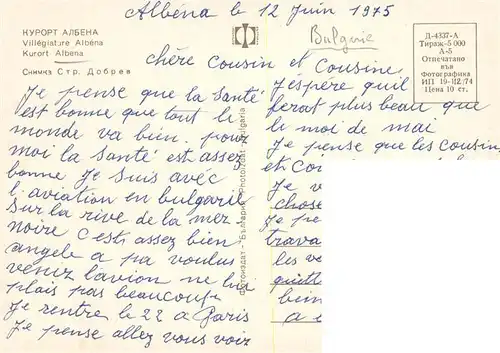 Albéna le 12 Juin 1975
Bulgarie
КУРОРТ АЛБЕНА
Villégiature Albéna
Kurort Albena
Снимка Стр. Добрев
Д-4337-А
Тираж-5 000
А-5
Отпечатано
във
Фотографика
ИП 19-III/74
Цена 10 ст.
chère Cousin et Cousine
Je pense que la Santé
est bonne que tout le
monde va bien. pour
moi la Santé est assez
bonne Je Suis avec
l'aviation en bulgarie
Sur la rive de la mer
noire c'est assez bien
angèle a pa voulus
venir l'avion ne lui
plais pas beaucoup
Je rentre le 22 a Paris
Je pense allez vous voir
J'éspère quil
ferat plus beau que
le moi de mai
Je pense que les Cousin,
et Cou
Je v
chose
Je pe
trava
les v
quitt
bein
a
Фотоиздат - България Photoizdat - Bulgaria